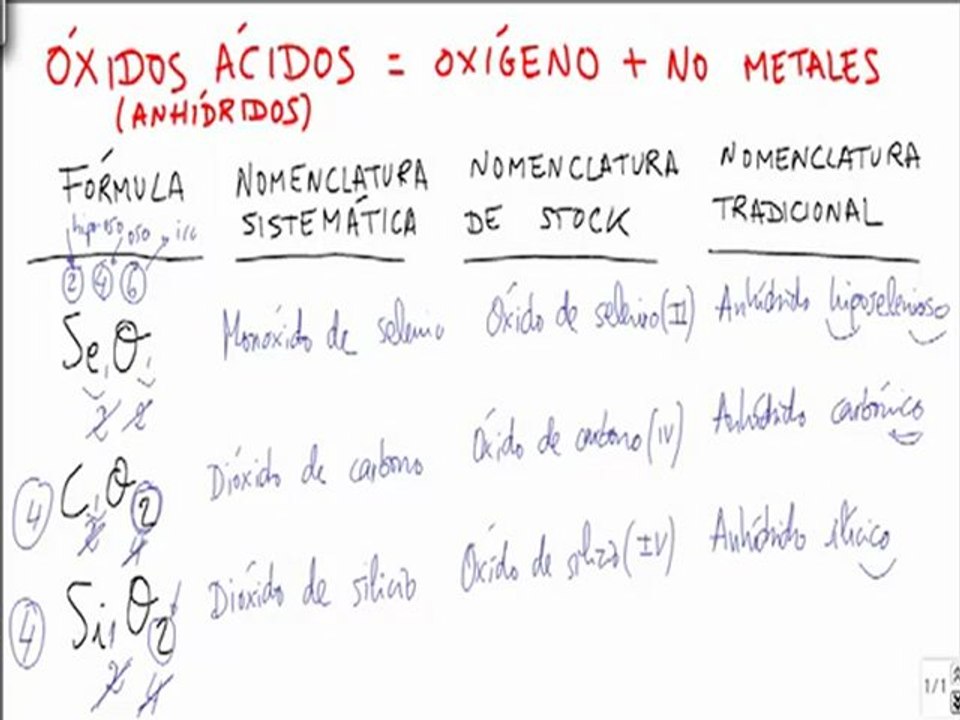 ÓXIDOS ÁCIDOS = OXÍGENO + NO METALES
(ANHÍDRIDOS)
FÓRMULA NOMENCLATURA SISTEMÁTICA NOMENCLATURA DE STOCK NOMENCLATURA TRADICIONAL
hipo-oso oso ico
2 4 6
Se1O1 Monóxido de selenio Óxido de selenio (II) Anhídrido hiposelenioso
2 2
4 C1O2 Dióxido de carbono Óxido de carbono (IV) Anhídrido carbónico
2 4
4 Si1O2 Dióxido de silicio Óxido de silicio (IV) Anhídrido silícico
2 4
1/1